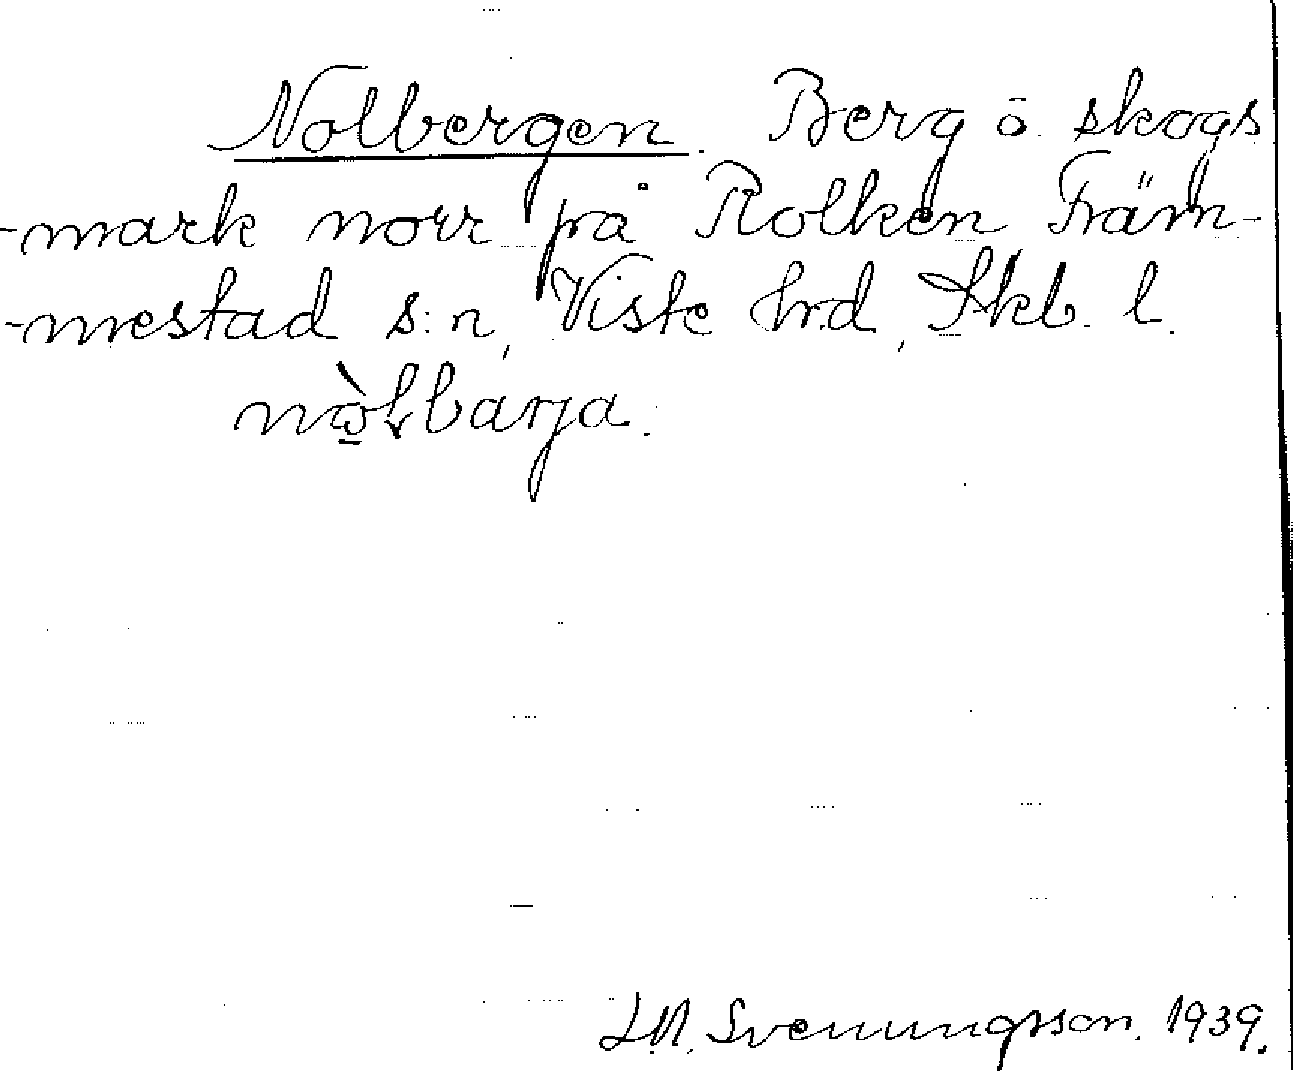 Nolbergen. Berg o. skogs
-mark norr på Rolken, Främ-
-mestad s:n, Viste hrd, Skb. l.
nò̱ɫbarja.
L.N. Svenungsson. 1939.